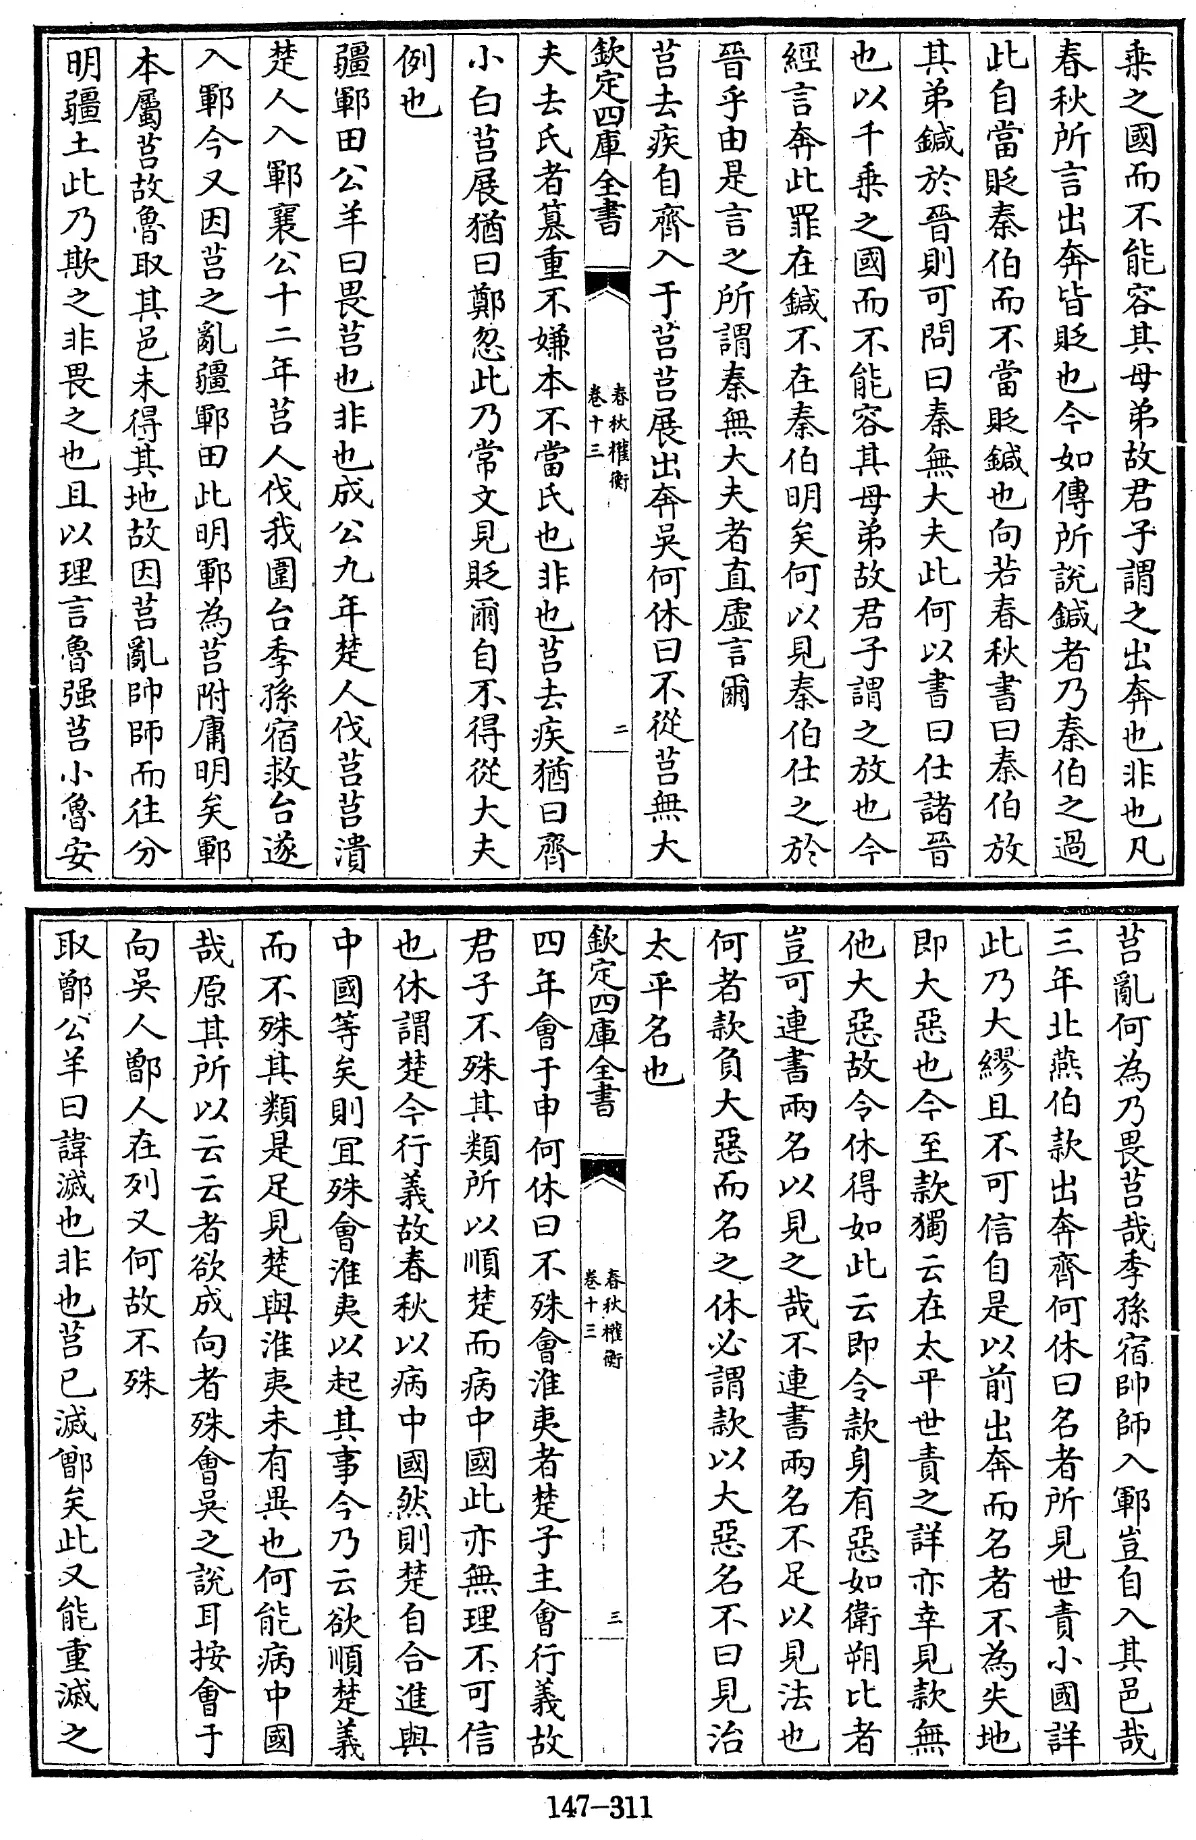 乗之國而不能容其母弟故君子謂之出奔也非也凡
春秋所言出奔皆貶也今如傳所說鍼者乃秦伯之過
此自當貶秦伯而不當貶鍼也向若春秋書曰秦伯放
其弟鍼於晉則可問曰秦無大夫此何以書曰仕諸晉
也以千乗之國而不能容其母弟故君子謂之放也今
經言奔此罪在鍼不在秦伯明矣何以見秦伯仕之於
晉乎由是言之所謂秦無大夫者直虛言爾
莒去疾自齊入于莒莒展出奔吳何休曰不從莒無大
欽定四庫全書
春秋權衡
卷十三
二
夫去氏者篡重不嫌本不當氏也非也莒去疾猶曰齊
小白莒展猶曰鄭忽此乃常文見貶爾自不得從大夫
例也
疆鄆田公羊曰畏莒也非也成公九年楚人伐莒莒潰
楚人入鄆襄公十二年莒人伐我圍台季孫宿救台遂
入鄆今又因莒之亂疆鄆田此明鄆為莒附庸明矣鄆
本屬莒故魯取其邑未得其地故因莒亂帥師而往分
明疆土此乃欺之非畏之也且以理言魯强莒小魯安
莒亂何為乃畏莒哉季孫宿帥師入鄆豈自入其邑哉
三年北燕伯款出奔齊何休曰名者所見世責小國詳
此乃大繆且不可信自是以前出奔而名者不為失地
即大惡也今至款獨云在太平世責之詳亦幸見款無
他大惡故令休得如此云即令款身有惡如衛朔比者
豈可連書兩名以見之哉不連書兩名不足以見法也
何者款負大惡而名之休必謂款以大惡名不曰見治
太平名也
欽定四庫全書
春秋權衡
卷十三
三
四年會于申何休曰不殊會淮夷者楚子主會行義故
君子不殊其類所以順楚而病中國此亦無理不可信
也休謂楚今行義故春秋以病中國然則楚自合進與
中國等矣則冝殊會淮夷以起其事今乃云欲順楚義
而不殊其類是足見楚與淮夷未有異也何能病中國
哉原其所以云云者欲成向者殊會吳之說耳按會于
向吳人鄫人在列又何故不殊
取鄫公羊曰諱滅也非也莒已滅鄫矣此又能重滅之
147-311